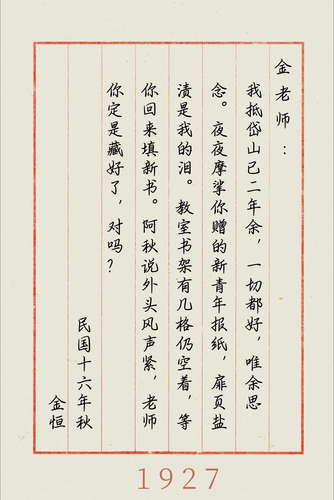 金老师：
我抵岱山已二年余，一切都好，唯余思
念。夜夜摩挲你赠的新青年报纸，扉页盐
渍是我的泪。教室书架有几格仍空着，等
你回来填新书。阿秋说外头风声紧，老师
你定是藏好了，对吗？
民国十六年秋
金恒
1927